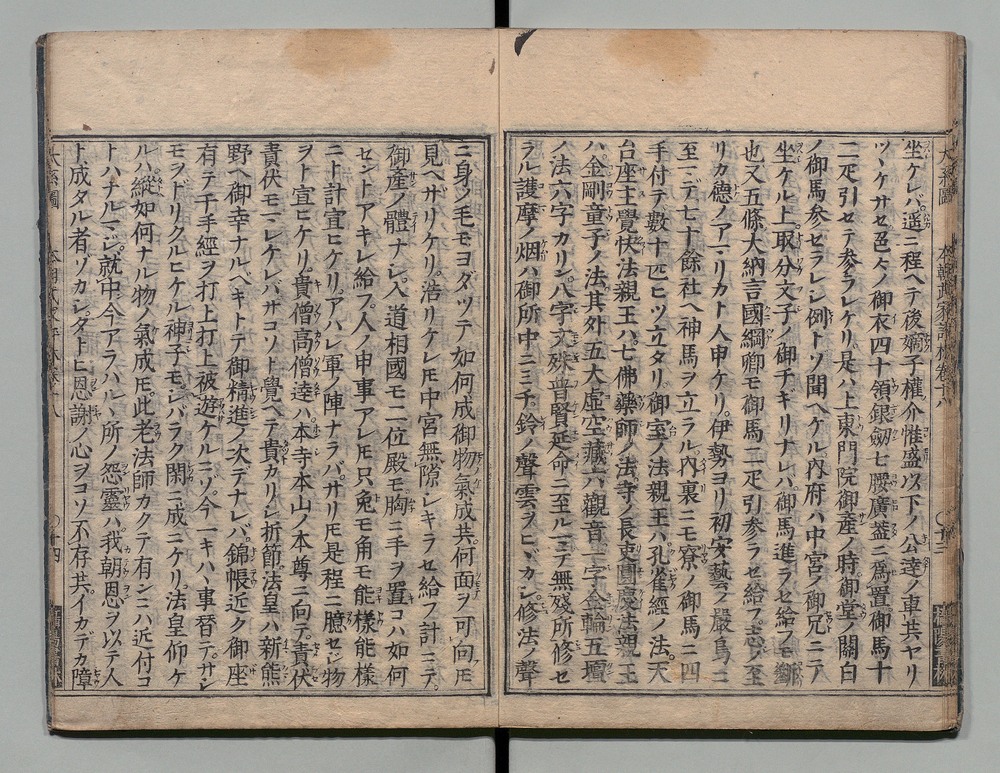 坐ケレバ遥ニ程ヘテ後嫡子權介惟盛以下ノ公達ノ車共ヤリ
ツヾケサセ色々ノ御衣四十領銀劔七腰廣葢ニ爲置御馬十
二疋引セテ参ラレケリ是ハ上東門院御産ノ時御堂ノ關白
ノ御馬参セラレシ例トソ聞ヘケル内府ハ中宮ノ御兄ニテ
坐ケル上取分父子ノ御チキリナレバ御馬進ラセ給フモ
也又五條大納言國綱卿モ御馬二疋引参ラセ給フ志ノ至
リカ德ノアマリカト人申ケリ伊勢ヨリ初安藝ノ嚴嶌ニ
至マデ七十餘社ヘ神馬ヲ立ラル内裏ニモ寮ノ御馬ニ四
手付テ數十匹ヒツ立タリ御室ノ法親王ハ孔雀經ノ法天
台座主覺快法親王ハ七佛藥師ノ法寺ノ長吏圓慶法親王
ハ金剛童子ノ法其外五大虚空藏六觀音一字金輪五壇
ノ法六字カリン八字文殊普賢延命ニ至ルマデ無殘所修セ
ラル護摩ノ烟ハ御所中ニミチ鈴ノ聲雲ヲヒヾカシ修法ノ聲
ニ身ノ毛モヨダツテ如何成御物氣成共何面ヲ可向トモ
見ヘサリケリ浩リケレ𪜈中宮無隙シキラセ給フ計ニテ
御産ノ體ナシ入道相國モ二位殿モ胸ニ手ヲ置コハ如何
セントアキレ給フ人ノ申事アレ𪜈只兔モ角モ能樣能樣
ニト計宜ヒケリアハレ軍ノ陣ナラバサリ𪜈是程ニ臆セジ物
ヲト宜ヒケリ貴僧高僧達ハ本寺本山ノ本尊ニ向テ責伏
責伏モミケレバサコソト覺ヘテ貴カリシ折節法皇ハ新熊
野ヘ御幸ナルベキトテ御精進ノ次デナレバ錦帳近ク御座
有テ千手經ヲ打上打上被遊ケルニゾ今一キハ事替テサシ
モヲドリクルヒケル神子モシバラク閑ニ成ニケリ法皇仰ケ
ルハ縱如何ナル物ノ氣成𪜈此老法師カクテ有ンニハ近付コ
トハナルマジ就中今アラハルヽ所ノ怨靈ハ我朝恩ヲ以テ人
ト成タル者ゾカシタトヒ恩謝ノ心ヲコソ不存共イカデカ障